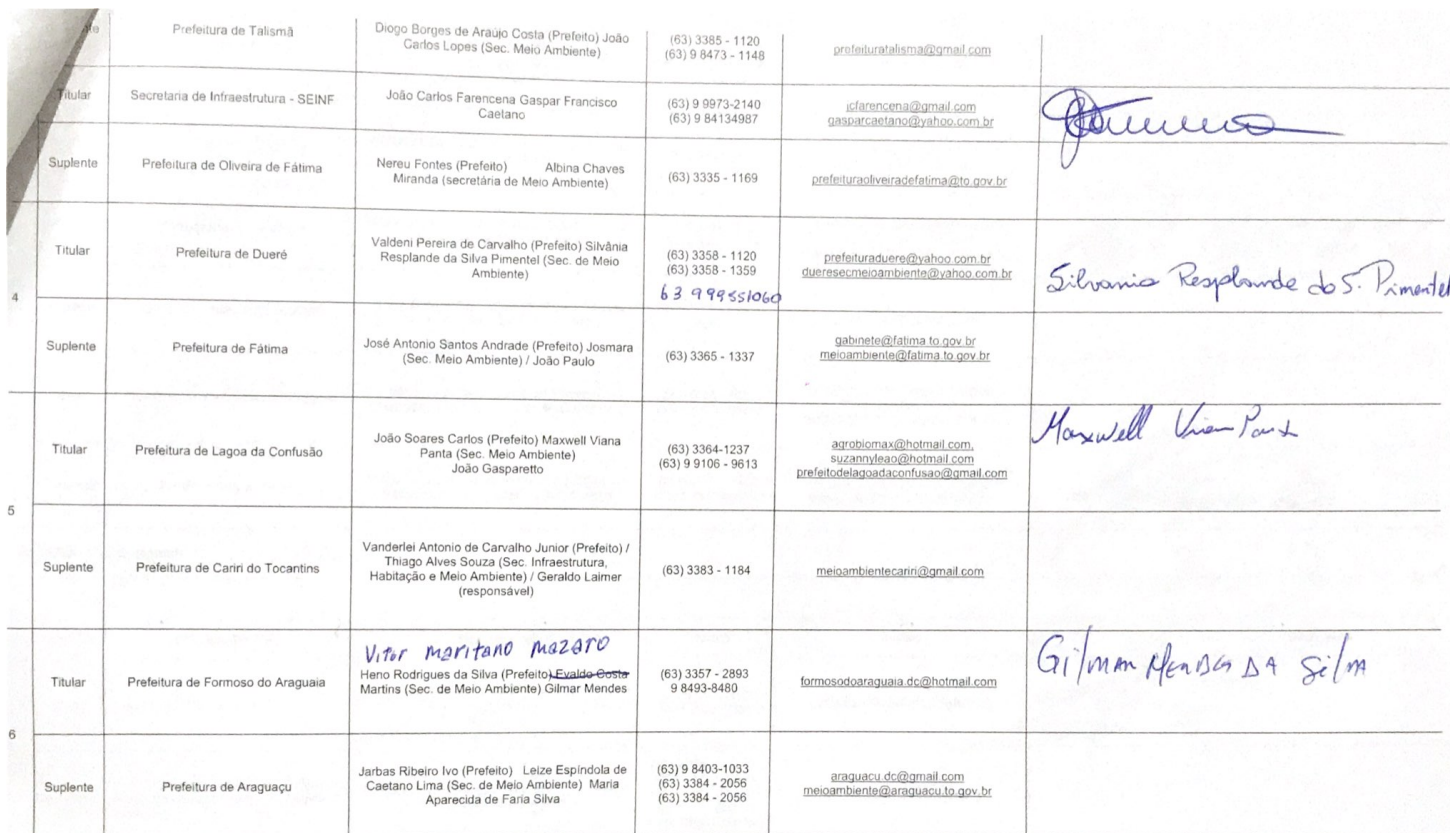 Prefeitura de Talismã
Diogo Borges de Araújo Costa (Prefeito) João
Carlos Lopes (Sec. Meio Ambiente)
(63) 3385 - 1120
(63) 9 8473 - 1148
prefeituratalisma@gmail.com
Titular
Secretaria de Infraestrutura - SEINF
João Carlos Farencena Gaspar Francisco
Caetano
(63) 9 9973-2140
(63) 9 84134987
jcfarencena@gmail.com
gasparcaetano@yahoo.com.br
Suplente
Prefeitura de Oliveira de Fátima
Nereu Fontes (Prefeito) Albina Chaves
Miranda (secretária de Meio Ambiente)
(63) 3335 - 1169
prefeituraoliveiradefatima@to.gov.br
4
Titular
Prefeitura de Dueré
Valdeni Pereira de Carvalho (Prefeito) Silvânia
Resplande da Silva Pimentel (Sec. de Meio
Ambiente)
(63) 3358 - 1120
(63) 3358 - 1359
63 999551060
prefeituraduere@yahoo.com.br
dueresecmeioambiente@yahoo.com.br
Silvania Resplande da S. Pimentel
Suplente
Prefeitura de Fátima
José Antonio Santos Andrade (Prefeito) Josmara
(Sec. Meio Ambiente) / João Paulo
(63) 3365 - 1337
gabinete@fatima.to.gov.br
meioambiente@fatima.to.gov.br
5
Titular
Prefeitura de Lagoa da Confusão
João Soares Carlos (Prefeito) Maxwell Viana
Panta (Sec. Meio Ambiente)
João Gasparetto
(63) 3364-1237
(63) 9 9106 - 9613
agrobiomax@hotmail.com,
suzannyleao@hotmail.com
prefeitodelagoadaconfusao@gmail.com
Maxwell Viana Panta
Suplente
Prefeitura de Cariri do Tocantins
Vanderlei Antonio de Carvalho Junior (Prefeito) /
Thiago Alves Souza (Sec. Infraestrutura,
Habitação e Meio Ambiente) / Geraldo Laimer
(responsável)
(63) 3383 - 1184
meioambientecariri@gmail.com
6
Titular
Prefeitura de Formoso do Araguaia
Vitor maritano mazaro
Heno Rodrigues da Silva (Prefeito) Evaldo Costa
Martins (Sec. de Meio Ambiente) Gilmar Mendes
(63) 3357 - 2893
9 8493-8480
formosodoaraguaia.dc@hotmail.com
Gilmar Mendes DA Silva
Suplente
Prefeitura de Araguaçu
Jarbas Ribeiro Ivo (Prefeito) Leize Espíndola de
Caetano Lima (Sec. de Meio Ambiente) Maria
Aparecida de Faria Silva
(63) 9 8403-1033
(63) 3384 - 2056
(63) 3384 - 2056
araguacu.dc@gmail.com
meioambiente@araguacu.to.gov.br